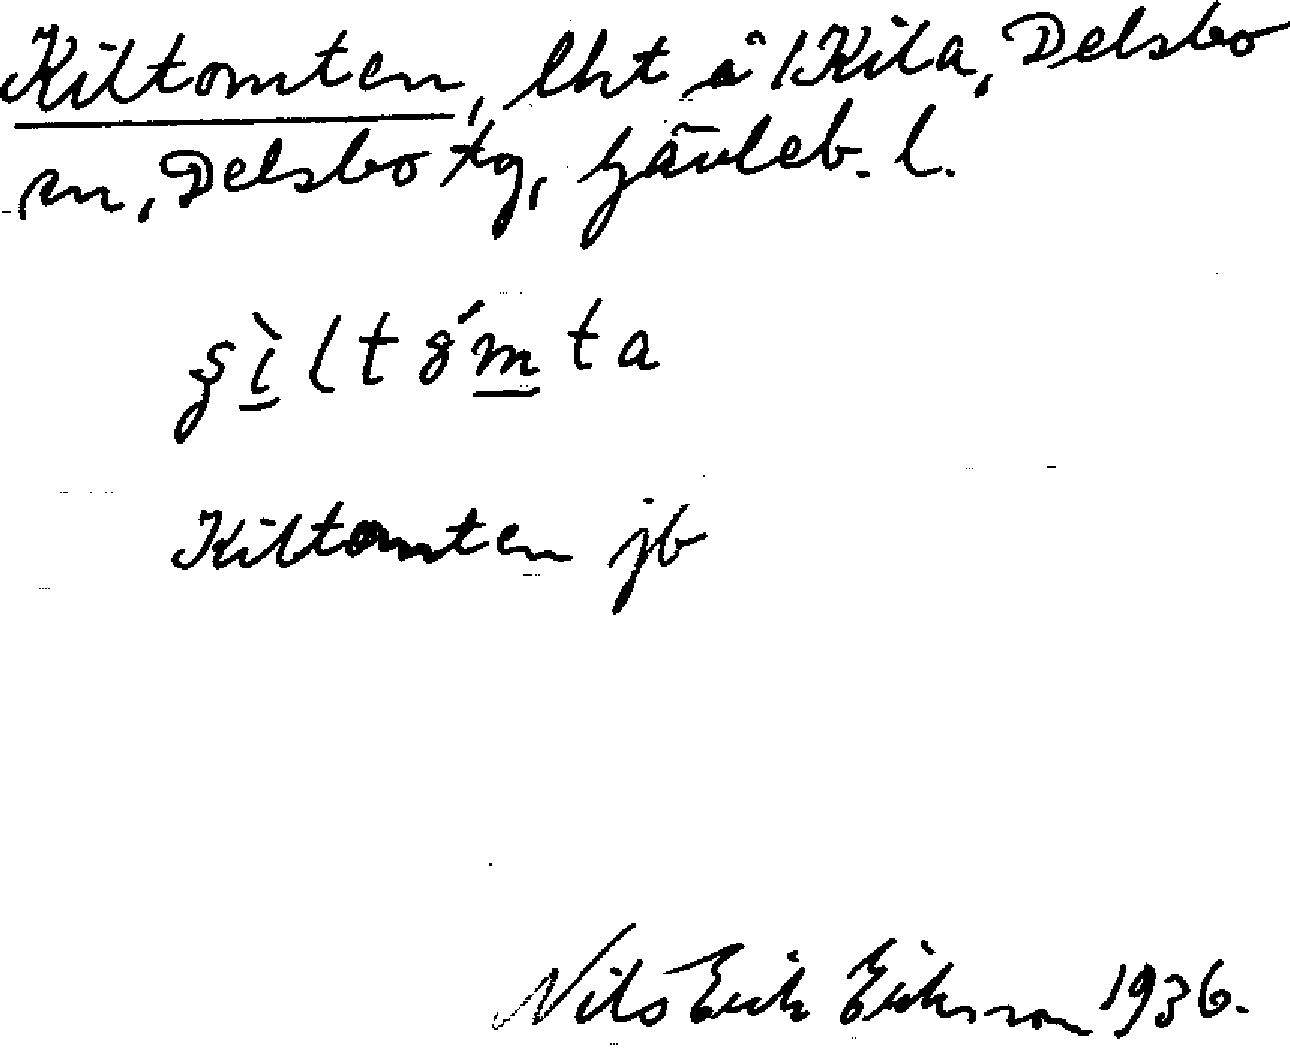 Kiltomten, lht å 1 Kila, Delsbo
sn, Delsbo tg, Gävleb. l.
Kiltomten jb
Nils Erik Eriksson 1936.